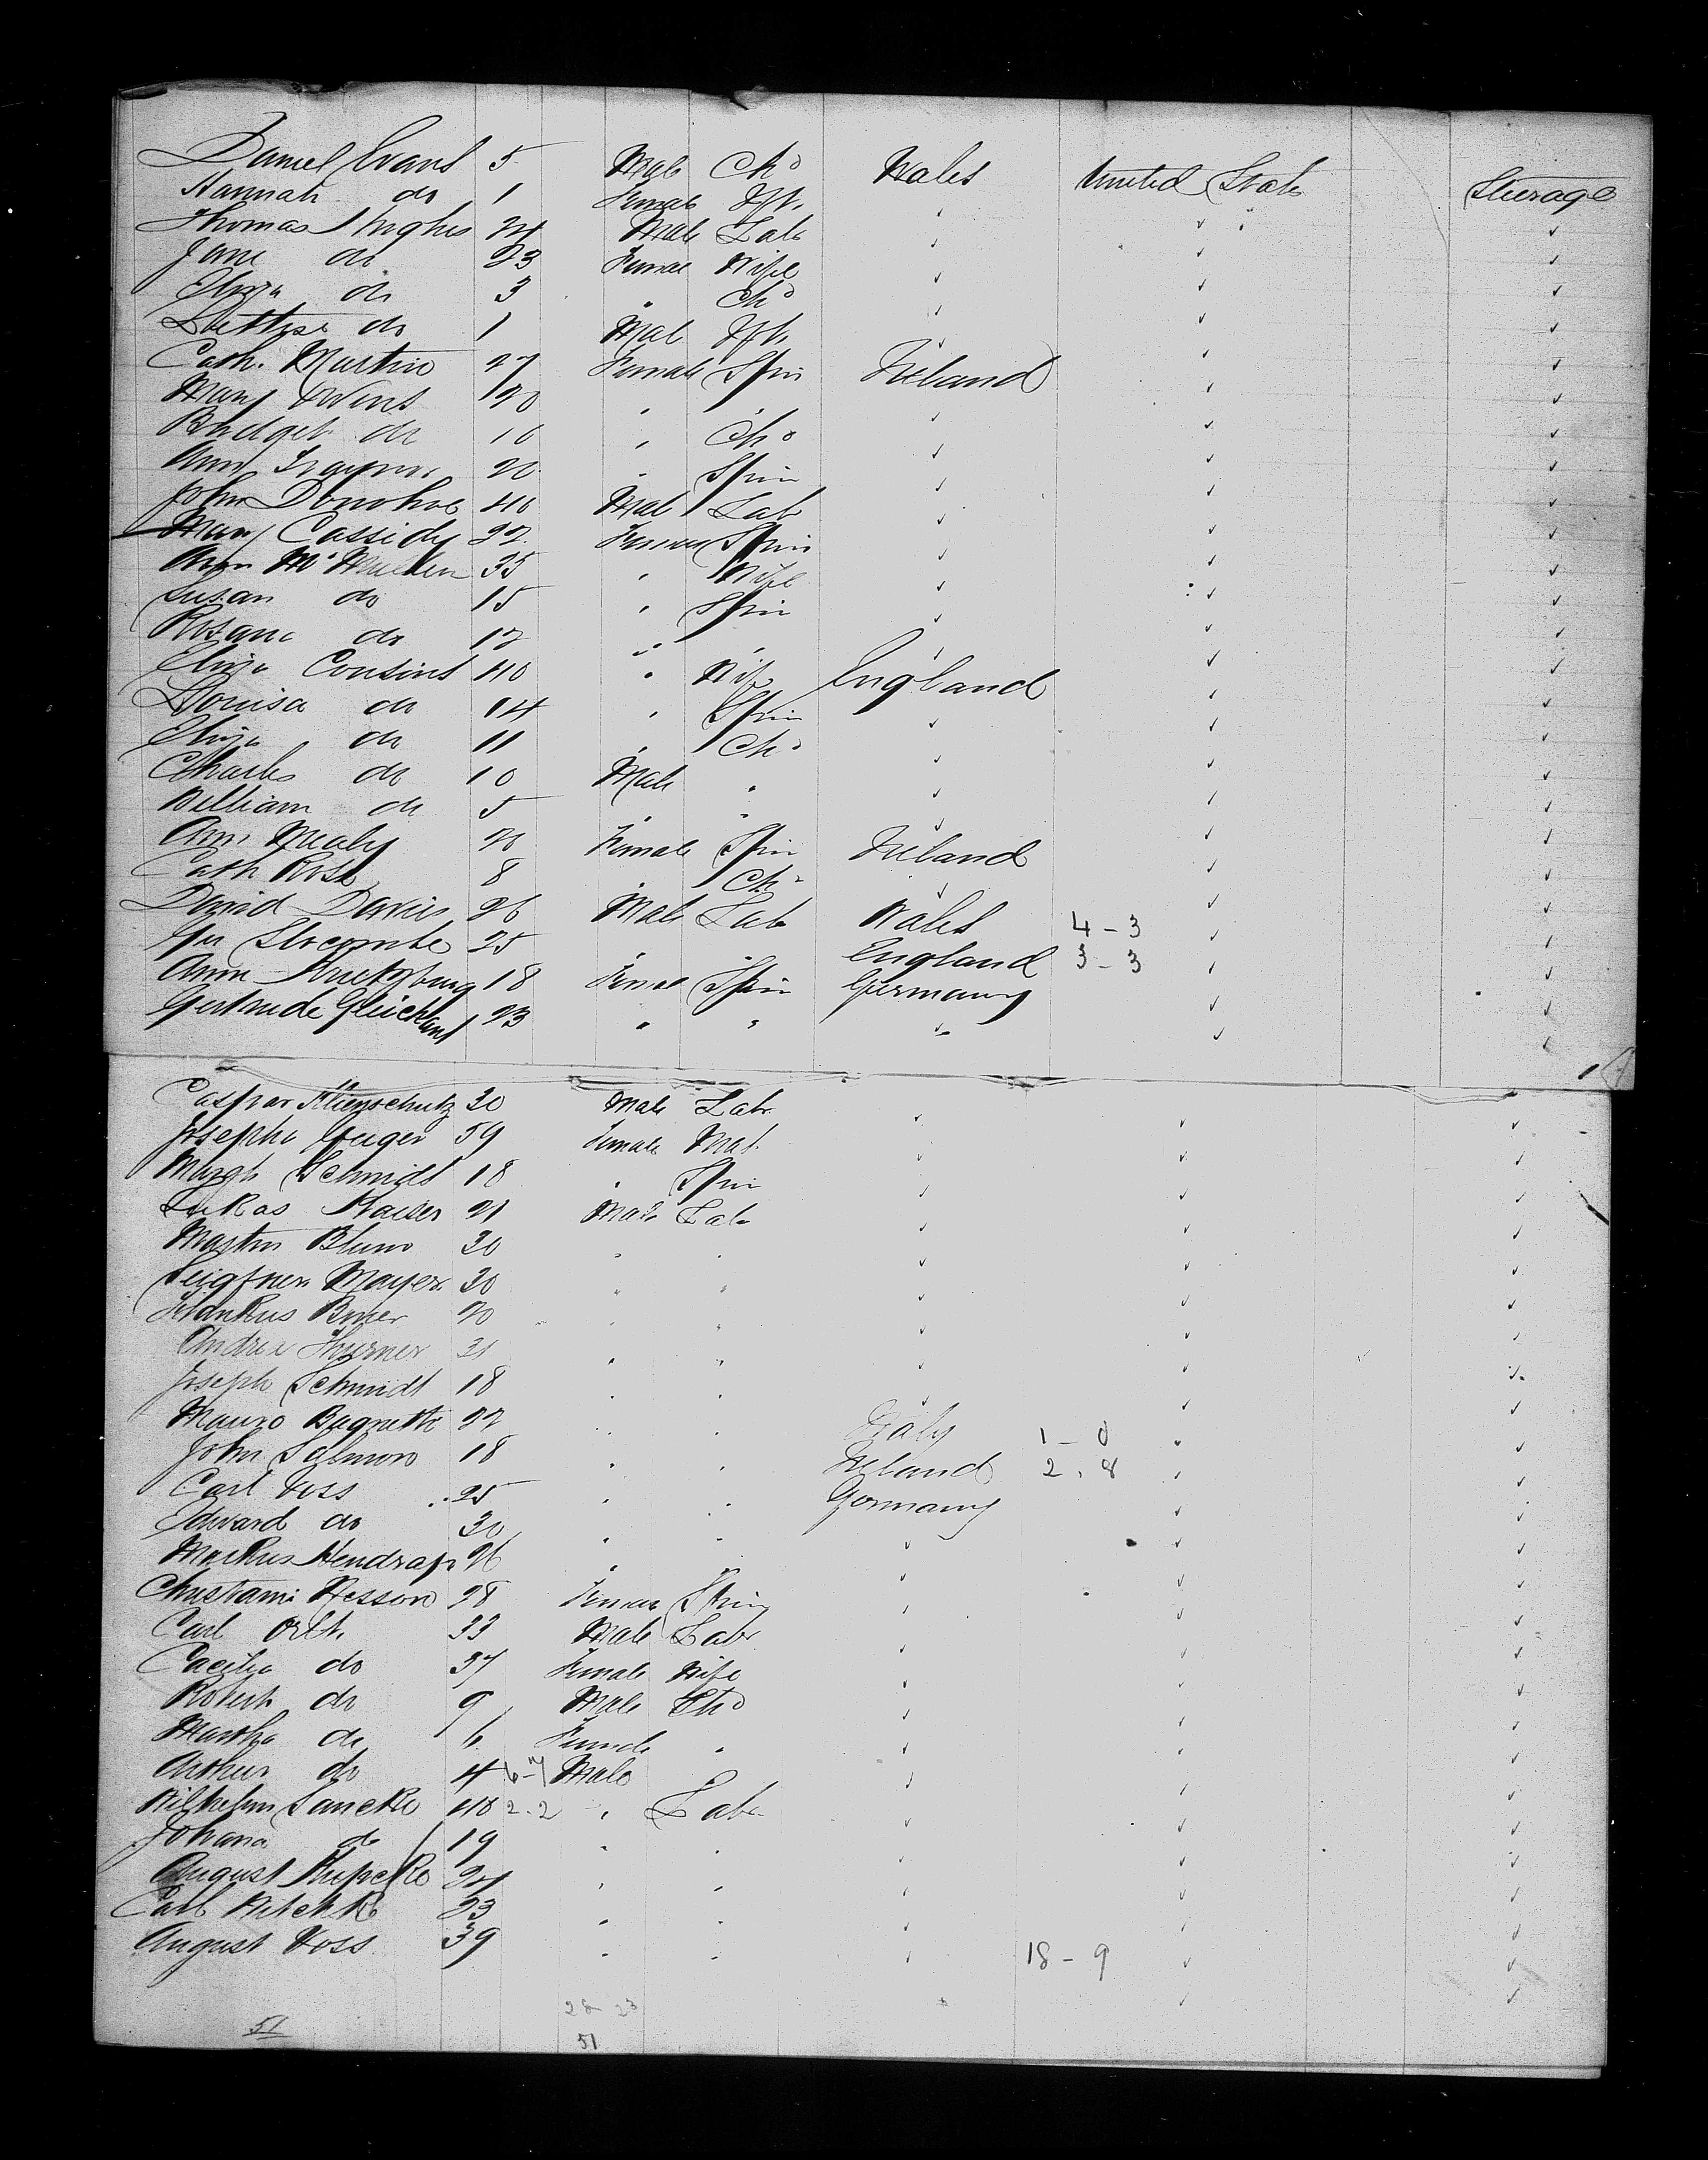 Daniel Evans 5 Male Chd Wales United States Steerage
Hannah do 1 Female Inft
Thomas Hughes 24 Male Lab
Jane do 23 Female Wife
Eliza do 3 " Chd
do 1 Male Inft
Cath. Martin 27 Female Spin Ireland
Mary Owens 20 " "
Bridget do 10 " Chd
Ann Traynor 20 " Spin
John Donohoe 40 Male Lab
Mary Cassidy 22 Female Spin
Ann McMullen 35 " Wife
Susan do 15 " Spin
Rosana do 12 " "
Eliza Cousins 40 " Wife England
Louisa do 14 " Spin
Eliza do 11 " Chd
Charles do 10 Male "
William do 5 " "
Ann Mealy 20 Female Spin Ireland
Cath Rose 8 " Chd
David Davies 26 Male Lab Wales 4-3
Slocombe 25 " " England 3-3
Ann 18 Female Spin Germany
Gertrude 23 " " "
Caspar 30 Male Labr
Josepha Geiger 59 Female Mat
Margh Schmidt 18 " Spin
Lukas Kaiser 21 Male Lab
Martin Blum 30 " "
Mayer 30 " "
20 " "
Andrea Thurner 31 " "
Joseph Schmidt 18 " "
Mauro 27 " " Italy 1-0
John Salmon 18 " " Ireland 2.8
Carl Voss 25 " " Germany
Edward do 30 " "
Markus 26 " "
Hesson 28 Female Spin
Carl Orth 33 Male Labr
Cacilia do 37 Female Wife
Robert do 9 Male Chd
Martha do 6 Female "
Arthur do 4 6-7 Male "
Wilhelm 40 2-2 " Labr
Johana do 19 " "
August 24 " "
Carl 23 " "
August Voss 39 " " 18-9
28 23
51 51